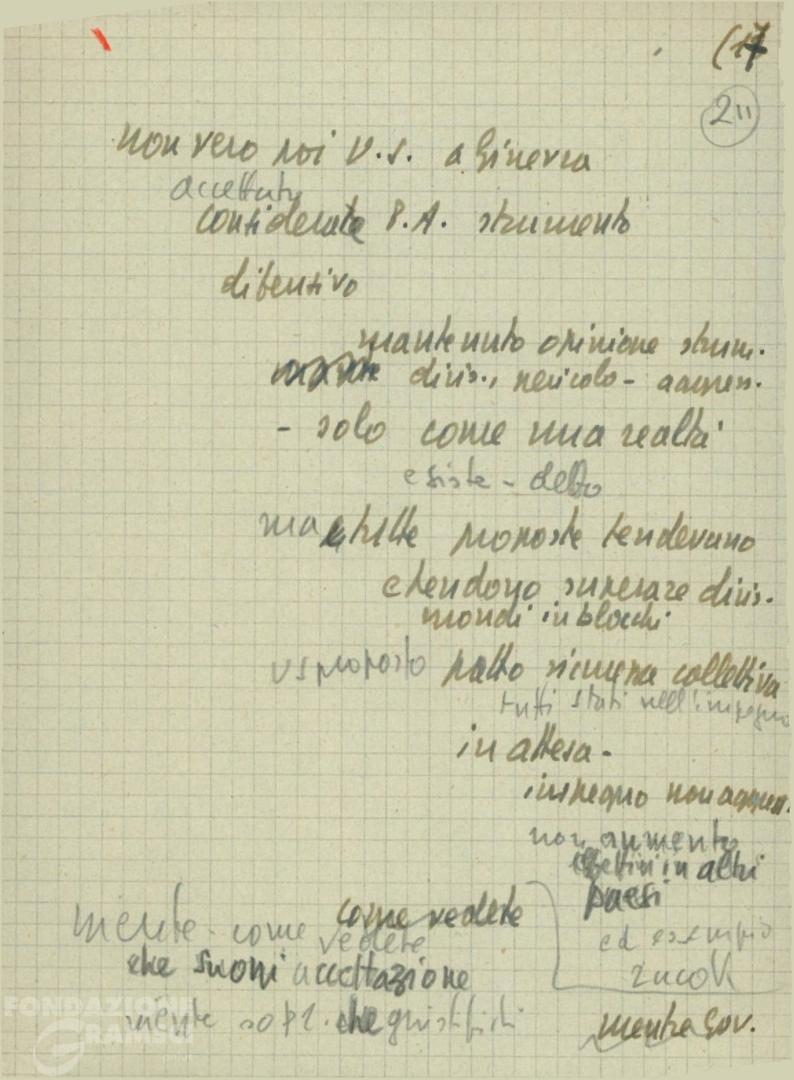 (17
211
non vero poi U.S. a Ginevra
accettato
considerato P.A. strumento
difensivo
mantenuto opinione strum.
divis., pericolo - aggress.
- solo come una realtà
esiste - detto
ma tutte proposte tendevano
e tendono superare divis.
mondi in blocchi
US proposto patto sicurezza collettiva
tutti stati nell'impegno
in attesa -
impegno non aggress.
non aumento
effettivi in altri
paesi
ed esempio
come vedete
niente - come vedete
che suoni accettazione
niente sopr. che giustifichi
mentre Gov.
FONDAZIONE
GRAMSCI